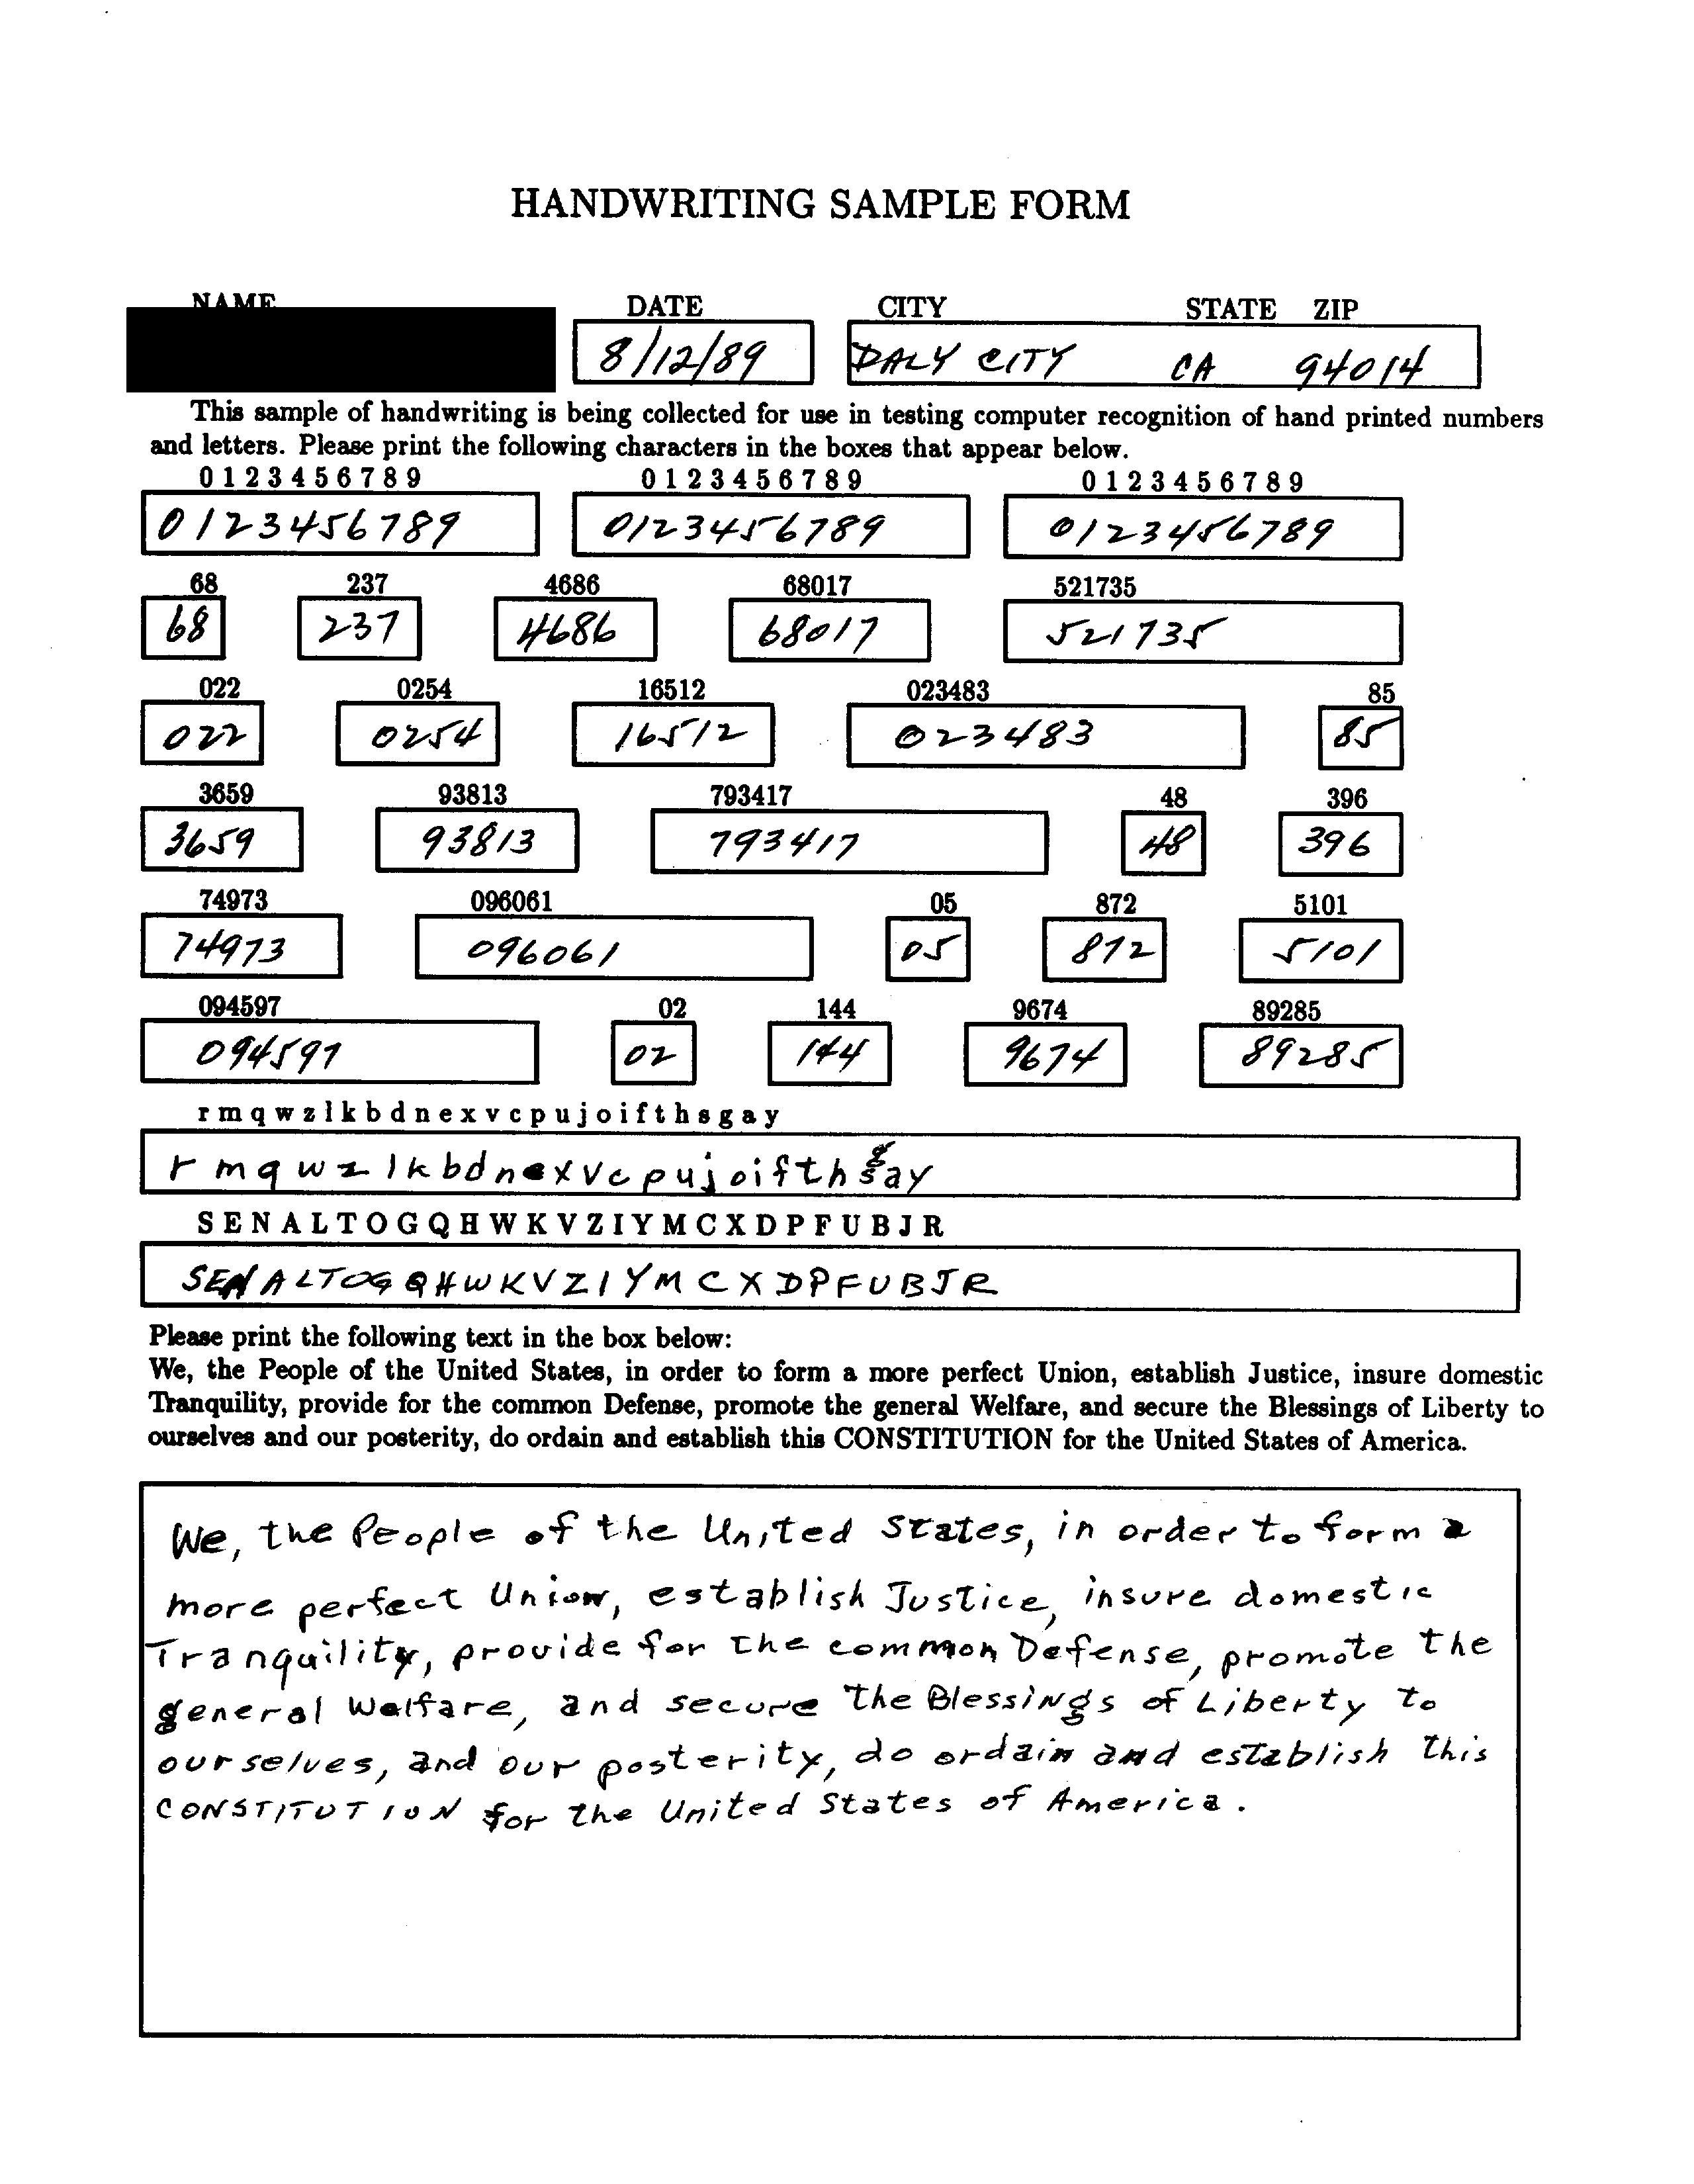 HANDWRITING SAMPLE FORM
NAME DATE CITY STATE ZIP
8/12/89 DALY CITY CA 94014
This sample of handwriting is being collected for use in testing computer recognition of hand printed numbers
and letters. Please print the following characters in the boxes that appear below.
0 1 2 3 4 5 6 7 8 9 0 1 2 3 4 5 6 7 8 9 0 1 2 3 4 5 6 7 8 9
0123456789 0123456789 0123456789
68 237 4686 68017 521735
68 237 4686 68017 521735
022 0254 16512 023483 85
022 0254 16512 023483 85
3659 93813 793417 48 396
3659 93813 793417 48 396
74973 096061 05 872 5101
74973 096061 05 872 5101
094597 02 144 9674 89285
094597 02 144 9674 89285
r m q w z l k b d n e x v c p u j o i f t h s g a y
r m q w z l k b d n e x v c p u j o i f t h s g a y
S E N A L T O G Q H W K V Z I Y M C X D P F U B J R
S E N A L T O G Q H W K V Z I Y M C X D P F U B J R
Please print the following text in the box below:
We, the People of the United States, in order to form a more perfect Union, establish Justice, insure domestic
Tranquility, provide for the common Defense, promote the general Welfare, and secure the Blessings of Liberty to
ourselves and our posterity, do ordain and establish this CONSTITUTION for the United States of America.
We, the People of the United States, in order to form a
more perfect Union, establish Justice, insure domestic
Tranquility, provide for the common Defense, promote the
general Welfare, and secure the Blessings of Liberty to
ourselves, and our posterity, do ordain and establish this
CONSTITUTION for the United States of America.